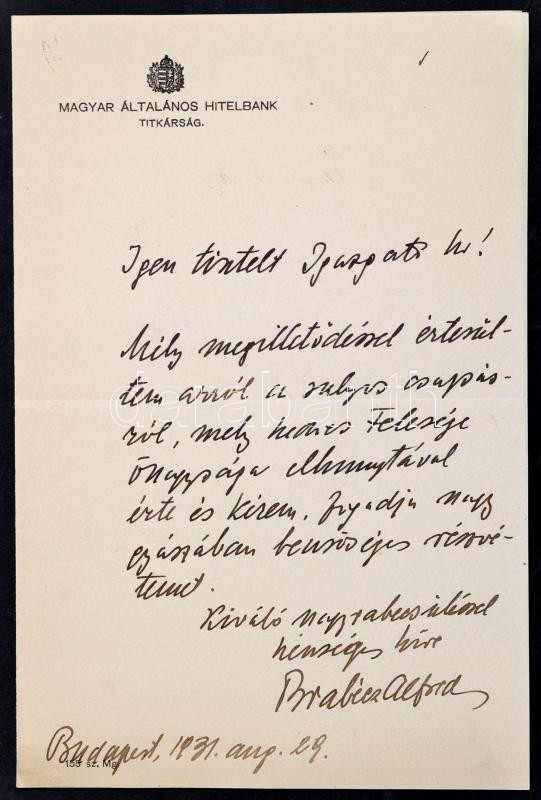 MAGYAR ÁLTALÁNOS HITELBANK
TITKÁRSÁG.
Igen tisztelt Igazgató Ur!
Mély megilletődéssel értesül-
tem arról a sulyos csapás-
ról, mely kedves Felesége
Őnagysága elhunytával
érte és kérem, fogadja nagy
gyászában bensőséges részvé-
temet.
Kiváló nagyrabecsüléssel
kész híve
Brabécz Alfréd
Budapest, 1931. aug. 29.
155 sz. Mg.
darabanth